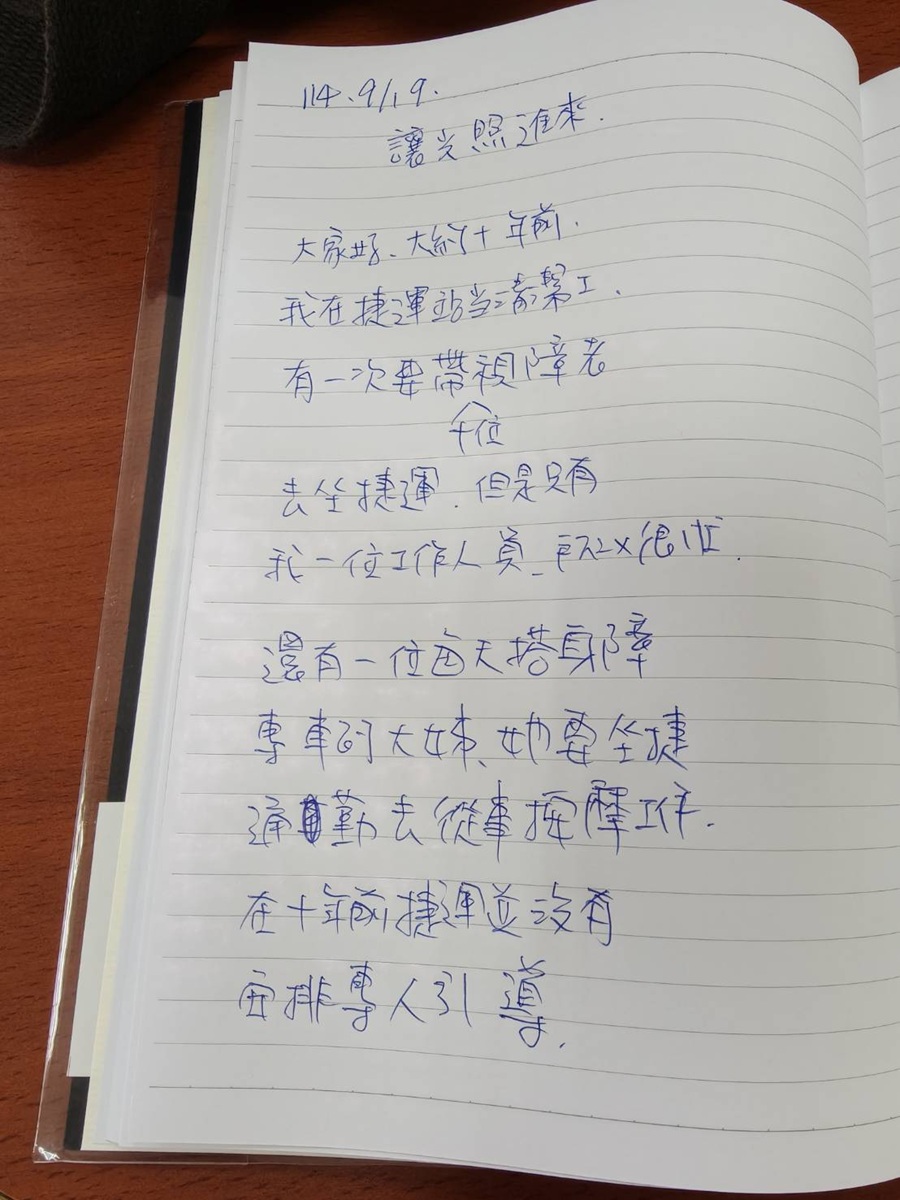 114.9/19.
讓光照進來.
大家好、大約十年前.
我在捷運站当清潔工.
有一次要帶視障者
十位
去坐捷運.但是只有
我一位工作人員、所以很忙.
還有一位每天搭身障
專車的大姊、她要坐捷
通勤去從事按摩工作.
在十年前捷運並沒有
安排專人引導.